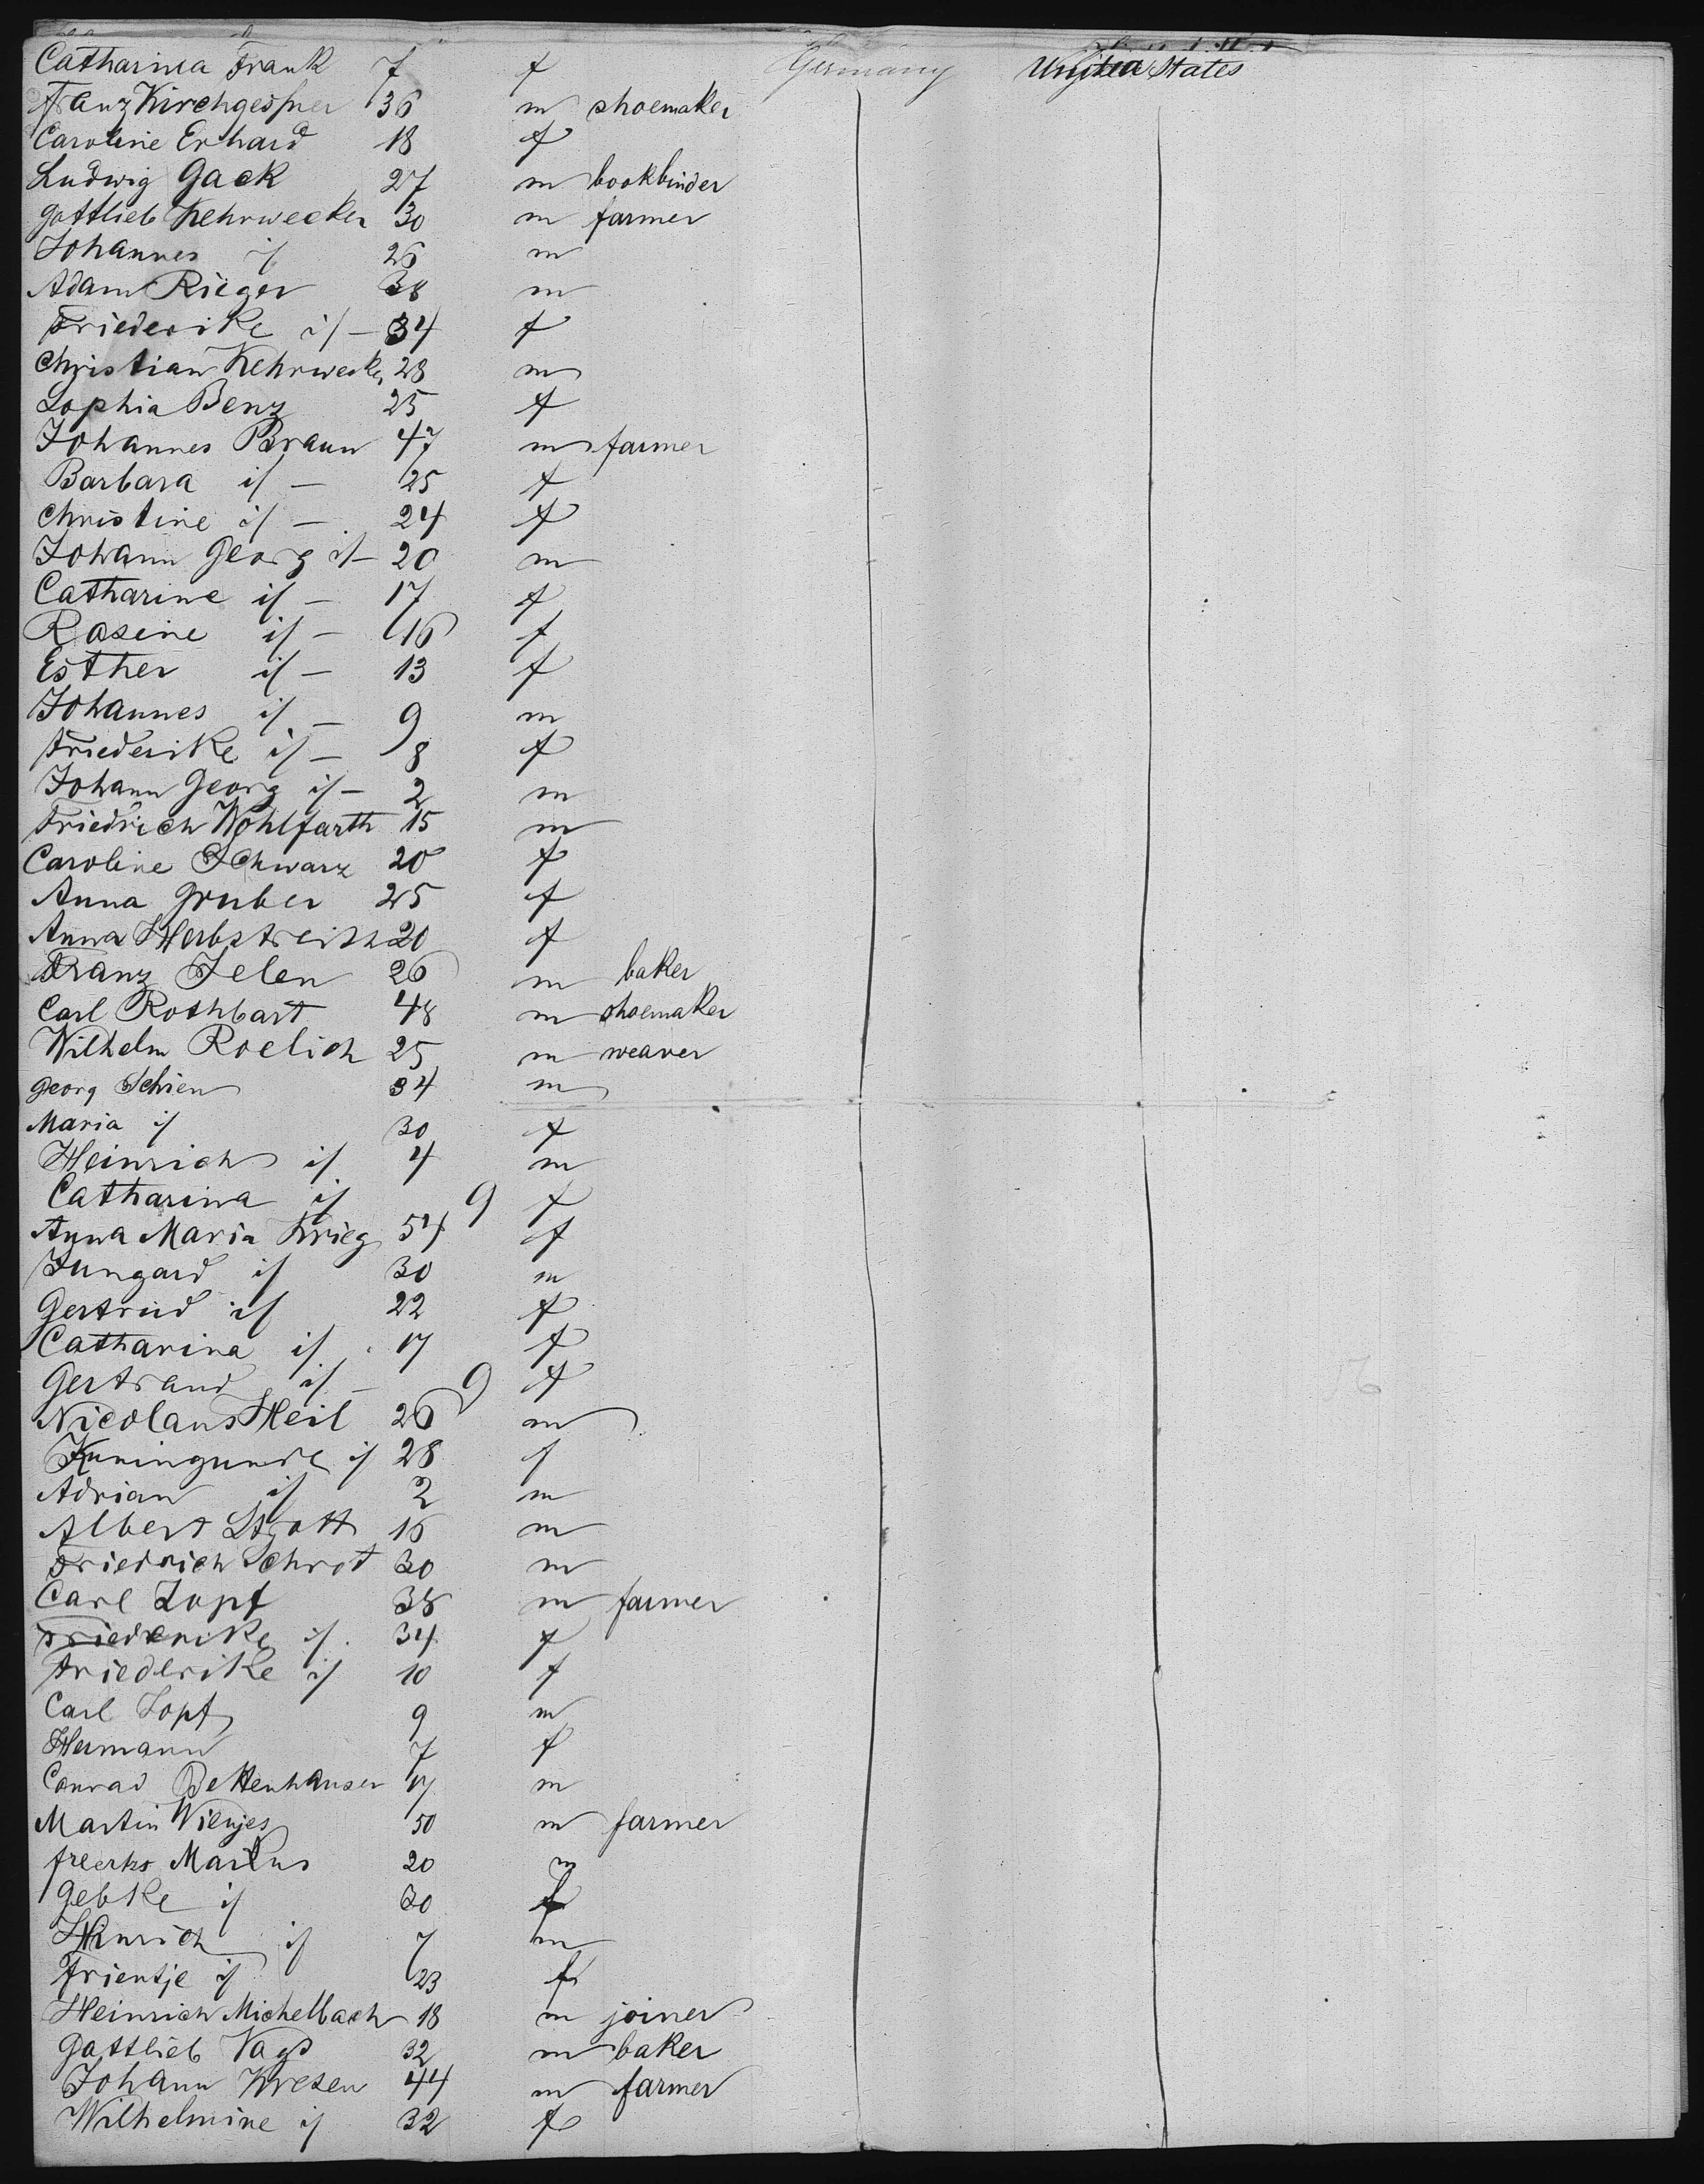 Catharina Frank 7 f Germany United States
Franz Kirchgeßner 36 m shoemaker
Caroline Erhard 18 f
Ludwig Gack 27 m bookbinder
Gottlieb Kehrwecker 30 m farmer
Johannes if 26 m
Adam Rieger 38 m
Friederike if — 34 f
Christian Kehrwecker 28 m
Sophia Benz 25 f
Johannes Braun 47 m farmer
Barbara if — 25 f
Christine if — 24 f
Johann Georg if — 20 m
Catharine if — 17 f
Rosine if — 16 f
Esther if — 13 f
Johannes if — 9 m
Friederike if — 8 f
Johann Georg if — 2 m
Friedrich Wohlfarth 15 m
Caroline Schwarz 20 f
Anna Gruber 25 f
Anna Herbstreith 20 f
Franz Jelen 26 m baker
Carl Rothbart 48 m shoemaker
Wilhelm Roelich 25 m weaver
Georg Schien 34 m
Maria if 30 f
Heinrich if 4 m
Catharina if 9 f
Anna Maria Krieg 54 f
Jungard if 30 m
Gertrud if 22 f
Catharina if 17 f
Gertraud if — 9 f
Nicolaus Heil 26 m
Kuningunde if 28 f
Adrian if 2 m
Albert 16 m
Friedrich Schrot 30 m
Carl Zopf 38 m farmer
Friederike if 34 f
Friederike if 10 f
Carl Zopf 9 m
Hermann 7 f
Conrad Bettenhauser 17 m
Martin Wienjes 50 m farmer
freerks Markus 20 m
Gebke if 30 f
Hinrich if 7 m
Trientje if 23 f
Heinrich Michelbach 18 m joiner
Gottlieb Vags 32 m baker
Johann Kresen 44 m farmer
Wilhelmine if 32 f